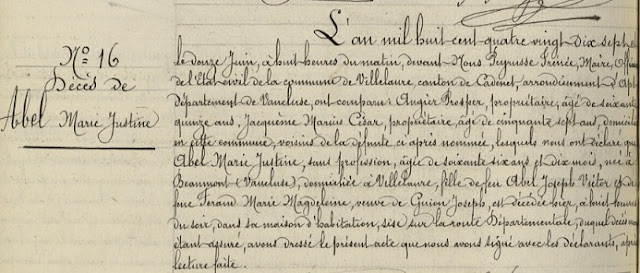 N° 16
Décès de
Abel Marie Justine
L'an mil huit cent quatre vingt Dix sept
le douze Juin, à huit heures du matin, devant Nous Peyrusse Irénée, Maire, Offici
de l'Etat civil de la commune de Villelaure, canton de Cadenet, arrondissement d'Apt
département de Vaucluse, ont comparu: Angier Prosper, propriétaire, âgé de soixant
quinze ans, Jacquème Marius César, propriétaire, âgé de cinquante sept ans, domiciliés
en cette commune, voisins de la défunte ci après nommée, lesquels nous ont déclaré que
Abel Marie Justine, sans profession, âgée de soixante six ans et dix mois, née à
Beaumont (Vaucluse), domiciliée à Villelaure, fille de feu Abel Joseph Victor et de
feue Féraud Marie Magdeleine, veuve de Guion Joseph, est décédée hier, à huit heures
du soir, dans sa maison d'habitation, sise sur la route Départementale, duquel décès nous
étant assuré, avons dressé le présent acte que nous avons signé avec les déclarants, après
lecture faite.